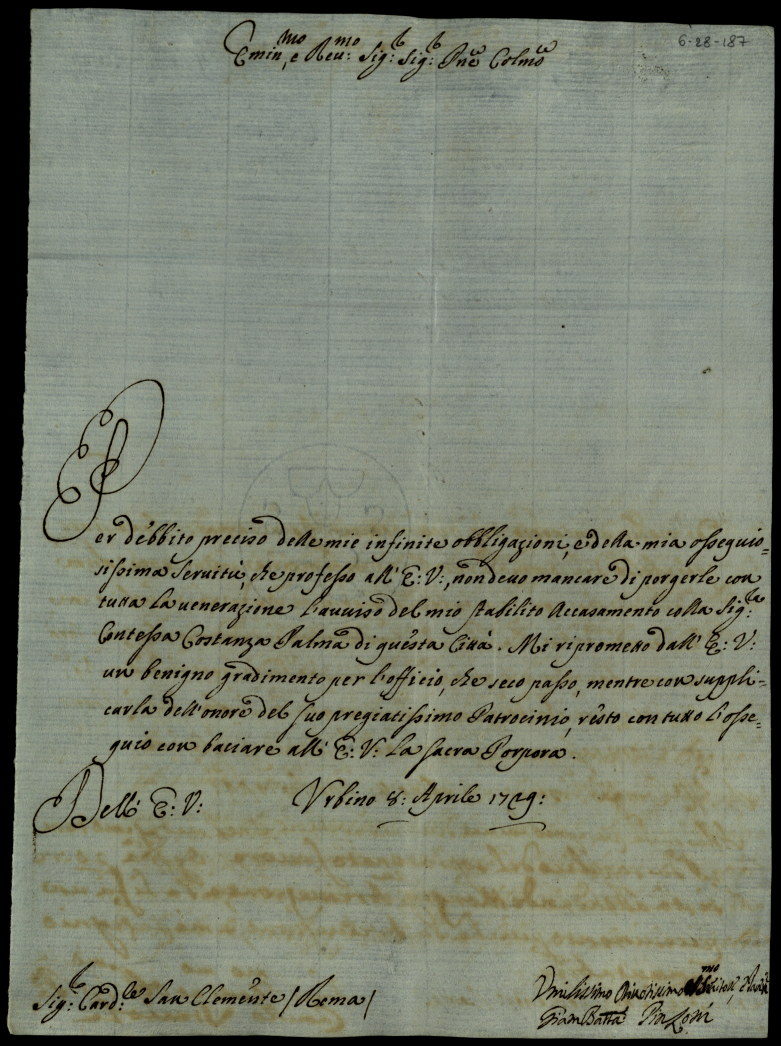 6-28-187
Emin:mo, e Reu:mo Sig:r Sig:r Pne Colmo
Per débbito preciso delle mie infinite obbligazioni, e della mia ossequio=
sissima seruitù, che professo all' E: V:, non deuo mancare di porgerle con
tutta la uenerazione l'auuiso del mio stabilito Accasamento colla Sig:ra
Contessa Costanza Palma di questa Città. Mi riprometto dall' E: V:
un benigno gradimento per l'officio, che seco passo, mentre con suppli=
carla dell'onore del suo pregiatissimo Patrocinio, resto con tutto l'osse=
quio con baciare all' E: V: la sacra Porpora.
Dell' E: V: Vrbino 8: Aprile 1729:
Sig:r Card:le San Clemente / Roma /
Vmilissimo Diuotissimo
Giam Batta